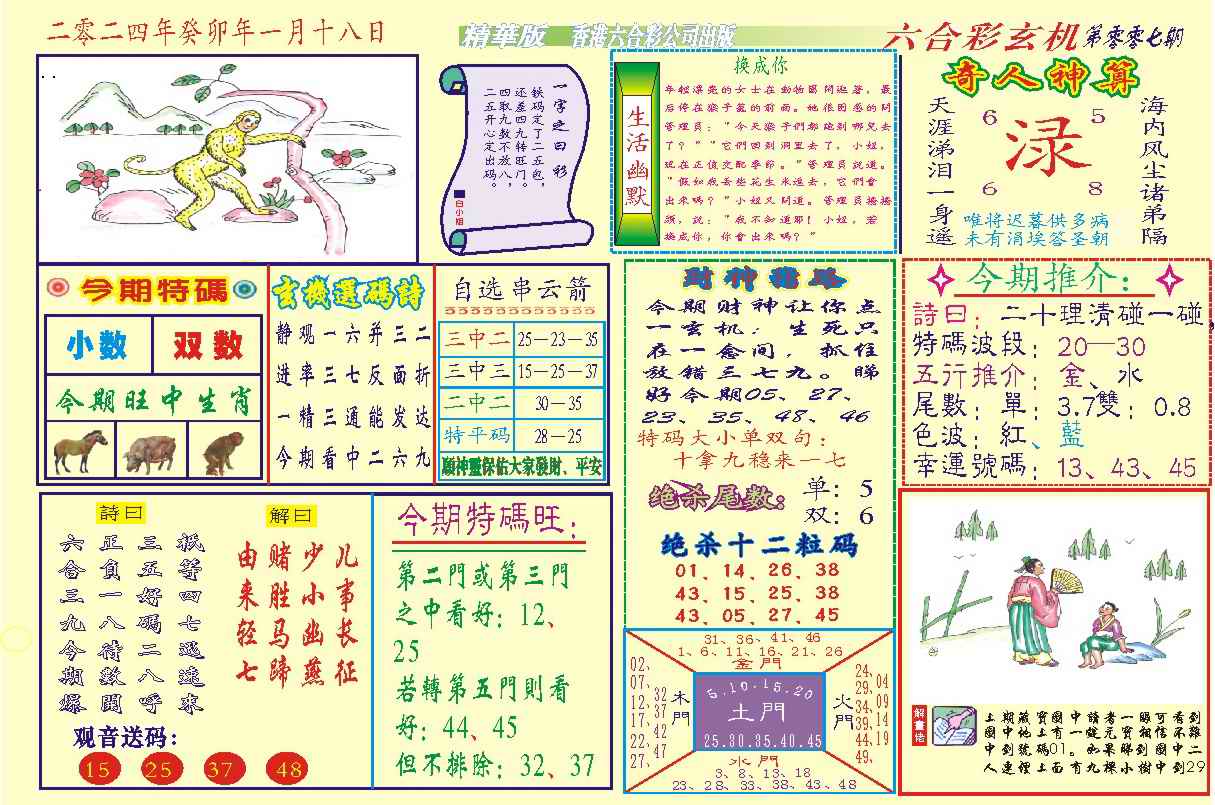 二零二四年癸卯年一月十八日
精華版 香港六合彩公司出版
六合彩玄机第零零七期
一字之曰：彩
铁码定了二五包，
还差四九转旺门。
四取九四不放八，
二五开心数定出码。
白小姐
生活幽默
换成你
年輕漂亮的女士在動物園閒逛著，最
后停在猴子籠的前面。她很困惑的問
管理員：“今天猴子們都跑到哪兒去
了？”“它們回到洞里去了，小姐，
現在正值交配季節。”管理員說道。
“假如我丟些花生米進去，它們會
出來嗎？”小姐又問道。管理員搔搔
頭，說：“我不知道耶！小姐，若
換成你，你會出來嗎？”
奇人神算
天涯涕泪一身遥
海内风尘诸弟隔
6 5
渌
6 8
唯将迟暮供多病
未有涓埃答圣朝
今期特碼
小数 双数
今期旺中生肖
玄機選碼詩
静观一六并三二
进率三七反面折
一精三通能发达
今期看中二六九
自选串云箭
三中二 25—23—35
三中三 15—25—37
二中二 30—35
特平码 28—25
願神靈保佑大家發財、平安
財神猪路
今期财神让你点
一玄机：生死只
在一念间，抓住
放错三七九。睇
好今期05、27、
23、35、48、46
特码大小单双句：
十拿九稳来一七
绝杀尾数：
单：5
双：6
绝杀十二粒码
01、14、26、38
43、15、25、38
43、05、27、45
今期推介：
詩曰：二十理清碰一碰
特碼波段：20—30
五行推介：金、水
尾數：單：3.7雙：0.8
色波：紅、藍
幸運號碼：13、43、45
詩曰
六合三九今期爆
正負一八待數開
三五好碼二八呼
祇等四七迅速來
解曰
由来轻七
赌胜马蹄
少小幽燕
儿事长征
观音送码：
15 25 37 48
今期特碼旺：
第二門或第三門
之中看好：12、
25
若轉第五門則看
好：44、45
但不排除：32、37
31、36、41、46
1、6、11、16、21、26
金門
02、07、12、17、22、27、
32 37 42 47
木門
5.10.15.20
土門
25.30.35.40.45
火門
24、29、34、39、44、49、
04 09 14 19
水門
3、8、13、18
23、28、33、38、43、48
解畫佬
上期藏寶圖中讀者一睇可看到
圖中地上有一錠元寶相信不難
中到號碼01。如果睇到圖中二
人連徑上面有九棵小樹中到29